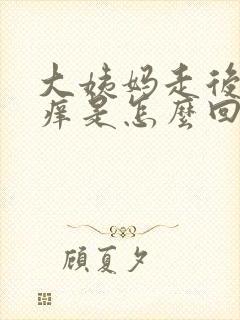 大姨妈走後
痒是怎麼回
顾夏夕